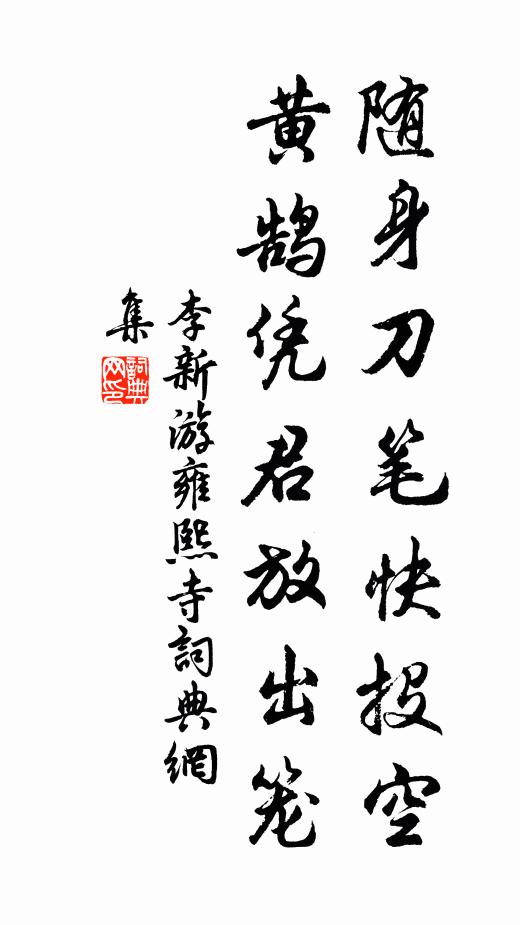 随身刀笔快投空
黄鹄凭君放出笼
李新游雍熙寺詞典網
集
詞典网印